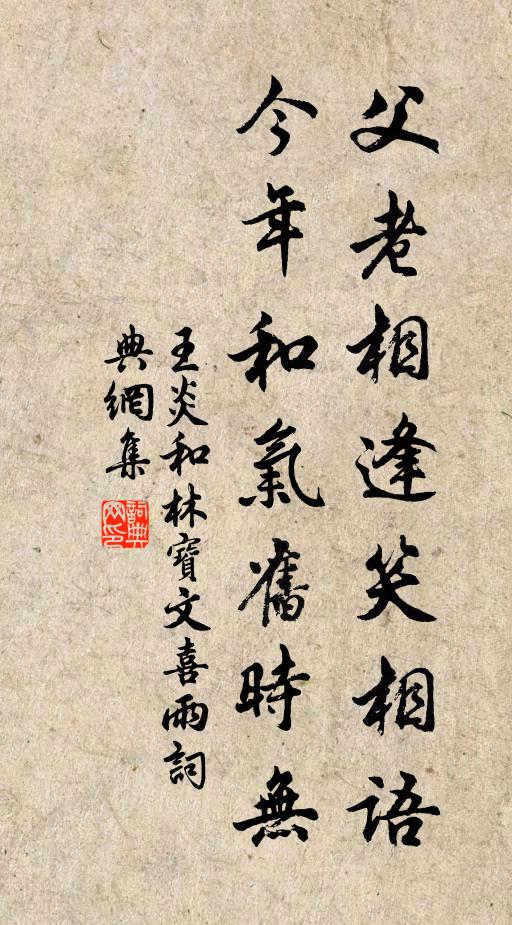 父老相逢笑相語
今年和氣舊時無
王炎和林寶文喜雨詞
典網集
詞典網印